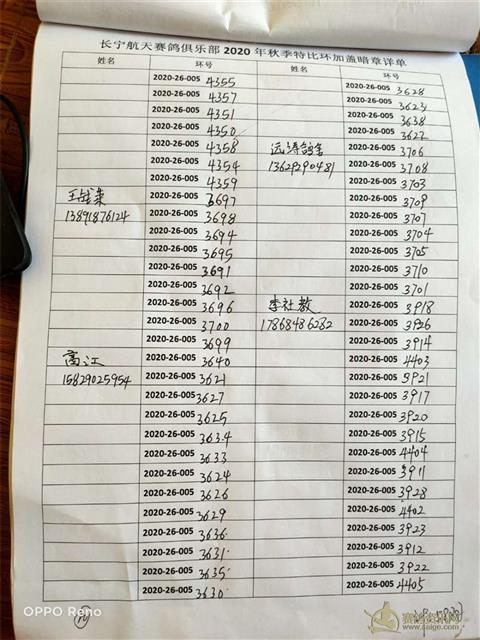 长宁航天赛鸽俱乐部 2020 年秋季特比环加盖暗章详单
姓名 环号 姓名 环号
2020-26-005 4355 2020-26-005 3628
2020-26-005 4357 2020-26-005 3623
2020-26-005 4351 2020-26-005 3638
2020-26-005 4350 2020-26-005 3622
2020-26-005 4358 远涛鸽舍 2020-26-005 3706
2020-26-005 4354 13629290481 2020-26-005 3708
2020-26-005 4359 2020-26-005 3703
2020-26-005 3697 2020-26-005 3709
13891876124 2020-26-005 3698 2020-26-005 3707
2020-26-005 3694 2020-26-005 3704
2020-26-005 3695 2020-26-005 3705
2020-26-005 3691 2020-26-005 3710
2020-26-005 3692 2020-26-005 3701
2020-26-005 3696 李社教 2020-26-005 3918
2020-26-005 3700 17868486282 2020-26-005 3926
2020-26-005 3699 2020-26-005 3914
高江 2020-26-005 3640 2020-26-005 4403
15829025954 2020-26-005 3621 2020-26-005 3921
2020-26-005 3627 2020-26-005 3917
2020-26-005 3625 2020-26-005 3920
2020-26-005 3634 2020-26-005 3915
2020-26-005 3633 2020-26-005 4404
2020-26-005 3624 2020-26-005 3911
2020-26-005 3626 2020-26-005 3928
2020-26-005 3629 2020-26-005 4402
2020-26-005 3636 2020-26-005 3923
2020-26-005 3631 2020-26-005 3912
2020-26-005 3635 2020-26-005 3922
2020-26-005 3630 2020-26-005 4405
OPPO Reno
www.saige.com